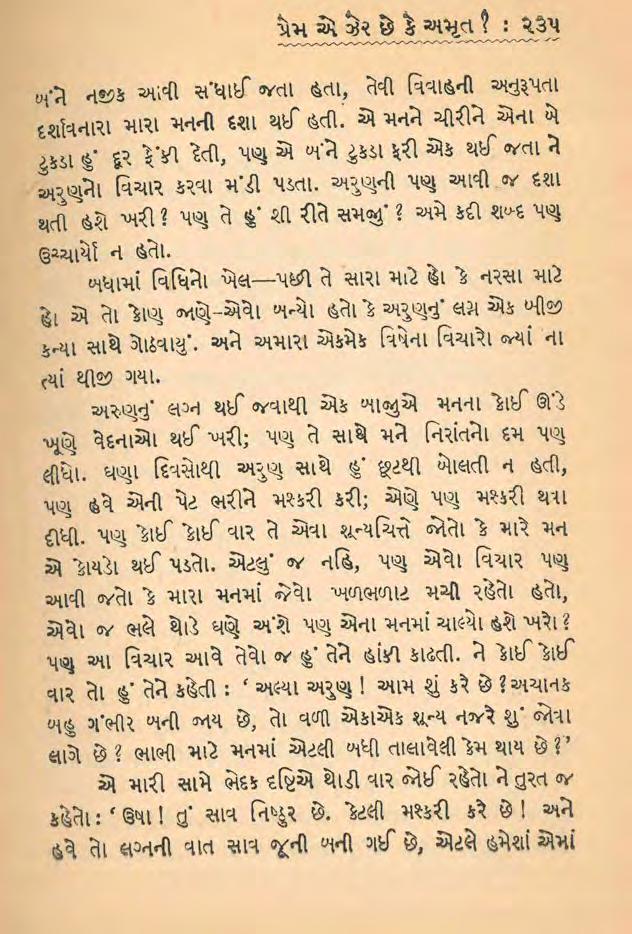 પ્રેમ એ ઝેર છે કે અમૃત? : ૨૩૫
બંને નજીક આવી સંધાઈ જતા હતા, તેવી વિવાહની અનુરૂપતા
દર્શાવનારા મારા મનની દશા થઈ હતી. એ મનને ચીરીને એના બે
ટુકડા હું દૂર ફેંકી દેતી, પણ એ બંને ટુકડા ફરી એક થઈ જતા ને
અરુણનો વિચાર કરવા મંડી પડતા. અરુણની પણ આવી જ દશા
થતી હશે ખરી? પણ તે હું શી રીતે સમજું? અમે કદી શબ્દ પણ
ઉચ્ચાર્યો ન હતો.
બધામાં વિધિનો ખેલ—પછી તે સારા માટે હો કે નરસા માટે
હો એ તો કોણ જાણે–એવો બન્યો હતો કે અરુણનું લગ્ન એક બીજી
કન્યા સાથે ગોઠવાયું. અને અમારા એકમેક વિષેના વિચારો જ્યાં ના
ત્યાં થીજી ગયા.
અરુણનું લગ્ન થઈ જવાથી એક બાજુએ મનના કોઈ ઊંડે
ખૂણે વેદનાઓ થઈ ખરી; પણ તે સાથે મને નિરાંતનો દમ પણ
લીધો. ઘણા દિવસોથી અરુણ સાથે હું છૂટથી બોલતી ન હતી,
પણ હવે એની પેટ ભરીને મશ્કરી કરી; એણે પણ મશ્કરી થવા
દીધી. પણ કોઈ કોઈ વાર તે એવા શૂન્યચિત્તે જોતો કે મારે મન
એ કોયડો થઈ પડતો. એટલું જ નહિ, પણ એવો વિચાર પણ
આવી જતો કે મારા મનમાં જેવો ખળભળાટ મચી રહેતો હતો,
એવો જ ભલે થોડે ઘણે અંશે પણ એના મનમાં ચાલ્યો હશે ખરો?
પણ આ વિચાર આવે તેવો જ હું તેને હાંકી કાઢતી. ને કોઈ કોઈ
વાર તો હું તેને કહેતી : ‘અલ્યા અરુણ! આમ શું કરે છે? અચાનક
બહુ ગંભીર બની જાય છે, તો વળી એકાએક શૂન્ય નજરે શું જોવા
લાગે છે? ભાભી માટે મનમાં એટલી બધી તાલાવેલી કેમ થાય છે?’
એ મારી સામે ભેદક દૃષ્ટિએ થોડી વાર જોઈ રહેતો ને તુરત જ
કહેતો : ‘ઉષા! તું સાવ નિષ્ઠુર છે. કેટલી મશ્કરી કરે છે! અને
હવે તો લગ્નની વાત સાવ જૂની બની ગઈ છે, એટલે હમેશાં એમાં